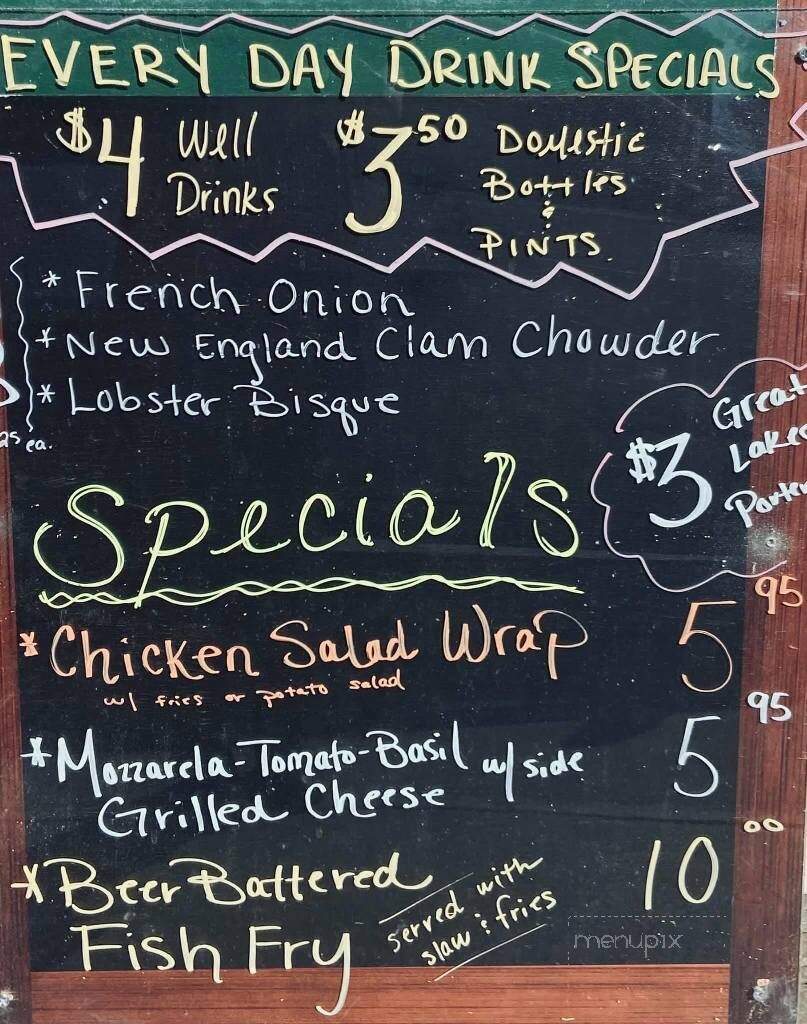 EVERY DAY DRINK SPECIALS
$4 Well Drinks
$3 50 Domestic Bottles & PINTS
* French Onion
* New England Clam Chowder
* Lobster Bisque
25 ea.
$3 Great Lakes Porter
Specials
* Chicken Salad Wrap 5 95
w/ fries or potato salad
* Mozzarela-Tomato-Basil w/ side 5 95
Grilled Cheese
* Beer Battered 10 00
Fish Fry
served with
slaw & fries
menupix